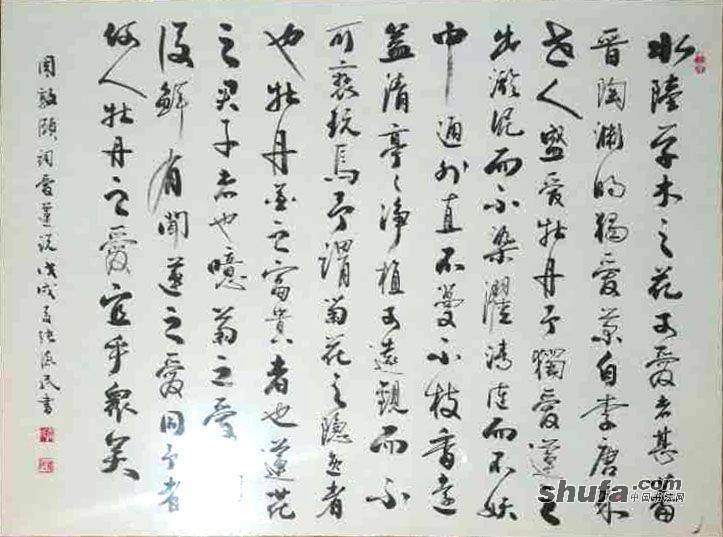 水陸草木之花可愛者甚蕃
晉陶淵明獨愛菊自李唐來
世人盛愛牡丹予獨愛蓮之
出淤泥而不染濯清漣而不妖
中通外直不蔓不枝香遠
益清亭々淨植可遠觀而不
可褻玩焉予謂菊花之隱逸者
也牡丹花之富貴者也蓮花
之君子者也噫菊之愛
後鮮有聞蓮之愛同予者
何人牡丹之愛宜乎眾矣
周敦頤詞愛蓮說戊戌夏張民書
shufa.com
中国书法网